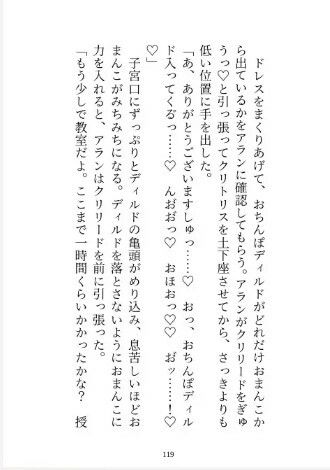 ドレスをまくりあげて、おちんぽディルドがどれだけおまんこか
ら出ているかをアランに確認してもらう。アランがクリリードをぎゅ
うっ♡と引っ張ってクリトリスを土下座させてから、さっきよりも
低い位置に手を出した。
「あ、ありがとうございますしゅっ……♡　おっ、おちんぽディル
ド入ってくるっ……♡　んおおっ♡　おほおっ♡♡　おッ……！♡
♡」
子宮口にずっぷりとディルドの亀頭がめり込み、息苦しいほどお
まんこがみちみちになる。ディルドを落とさないようにおまんこに
力を入れると、アランはクリリードを前に引っ張った。
「もう少しで教室だよ。ここまで一時間くらいかかったかな？　授
119